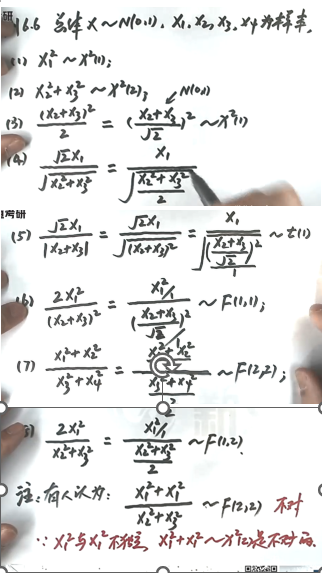 研
16.6 总体 X~N(0,1), X₁, X₂, X₃, X₄ 为样本,
(1) X₁² ~ χ²(1);
(2) X₂²+X₃² ~ χ²(2); N(0,1)
(3) (X₂+X₃)²/2 = ((X₂+X₃)/√2)² ~ χ²(1)
(4) √2X₁/√(X₂²+X₃²) = X₁/√((X₂²+X₃²)/2)
考研
(5) √2X₁/|X₂+X₃| = √2X₁/√((X₂+X₃)²) = X₁/√(((X₂+X₃)/√2)²/1) ~ t(1)
(6) 2X₁²/(X₂+X₃)² = X₁²/1/((X₂+X₃)/√2)² ~ F(1,1);
(7) (X₁²+X₂²)/(X₃²+X₄²) = (X₁²+X₂²)/2/(X₃²+X₄²)/2 ~ F(2,2);
2X₁²/(X₂²+X₃²) = X₁²/1/(X₂²+X₃²)/2 ~ F(1,2).
注: 有人认为: (X₁²+X₁²)/(X₂²+X₃²) ~ F(2,2) 不对
∵ X₁²与X₁²不独立, X₁²+X₁²~χ²(2)是不对的.